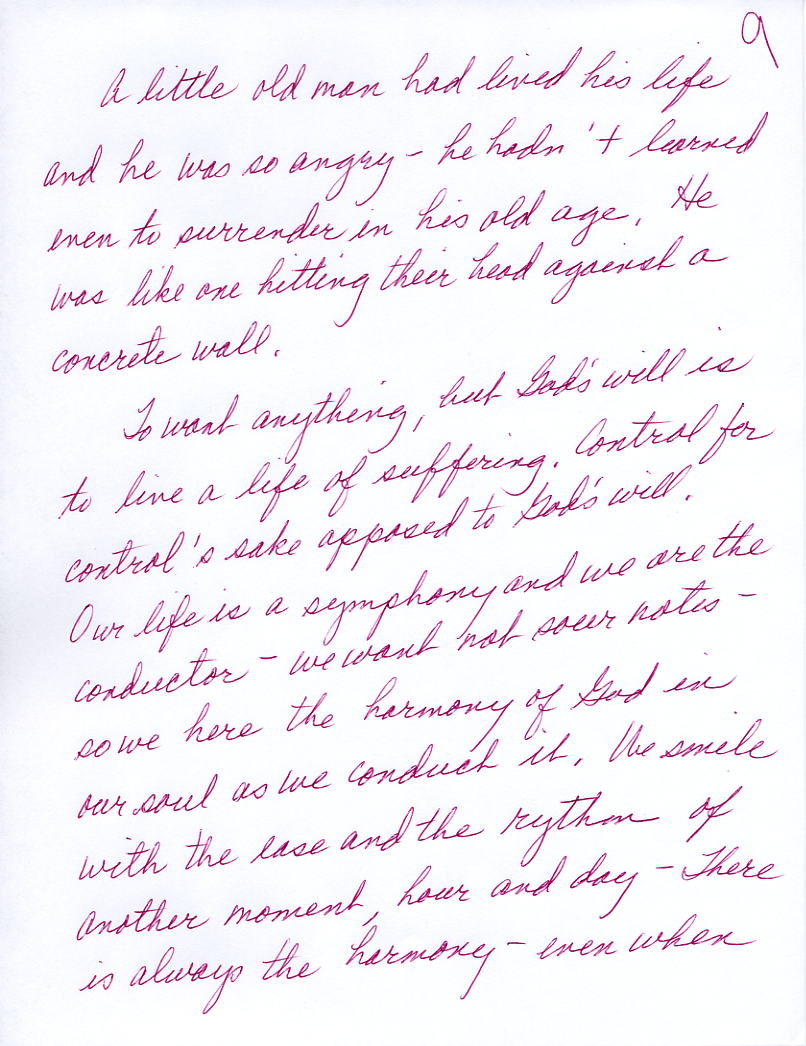 9
A little old man had lived his life
and he was so angry - he hadn't learned
even to surrender in his old age. He
was like one hitting their head against a
concrete wall.
To want anything, but God's will is
to live a life of suffering. Control for
control's sake opposed to God's will.
Our life is a symphony and we are the
conductor - we want not sour notes -
so we here the harmony of God in
our soul as we conduct it. We smile
with the ease and the rythm of
another moment, hour and day - There
is always the harmony - even when